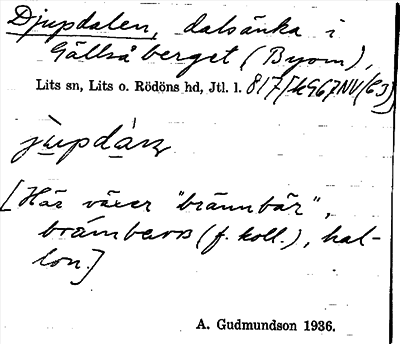 Djupdalen, dalsänka i
Gällsåberget (Byom),
Lits sn, Lits o. Rödöns hd, Jtl. l. 817
jupdárn
[Här växer "brännbär",
(f. koll.), hal-
lon.]
A. Gudmundson 1936.